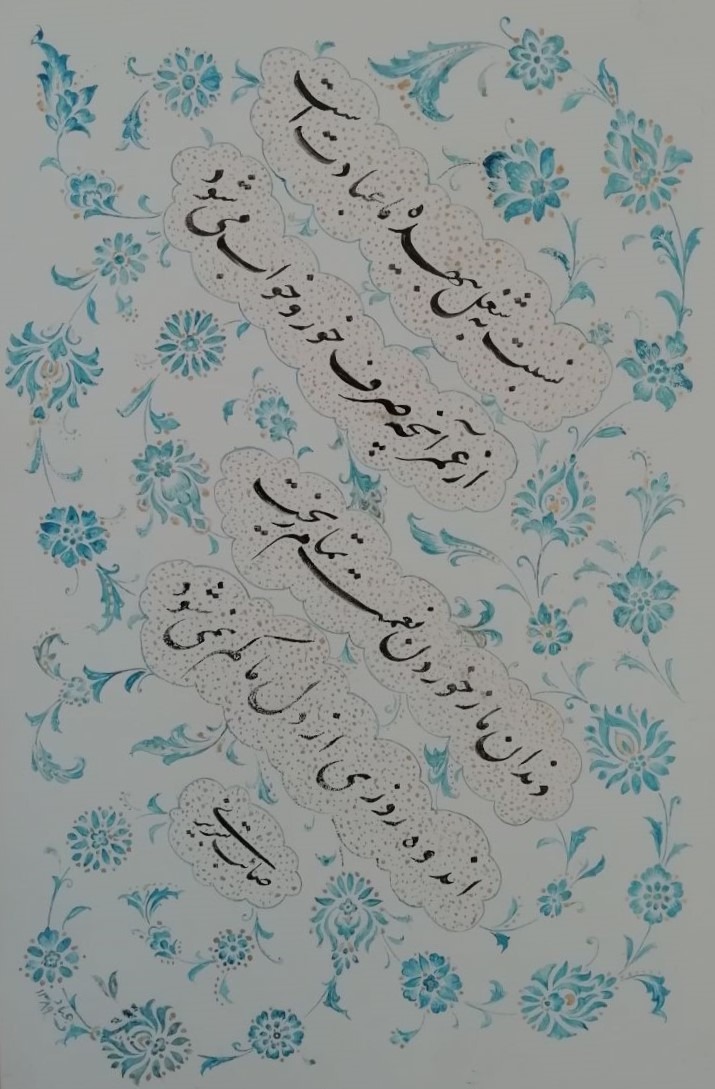 نسبت به شغل بیهده ما عبادت است
از عمر آنچه صرف خور و خواب می شود
دندان ما ز خوردن نعمت تمام ریخت
اندوه روزی از دل ما کم نمی شود
صائب تبریزی